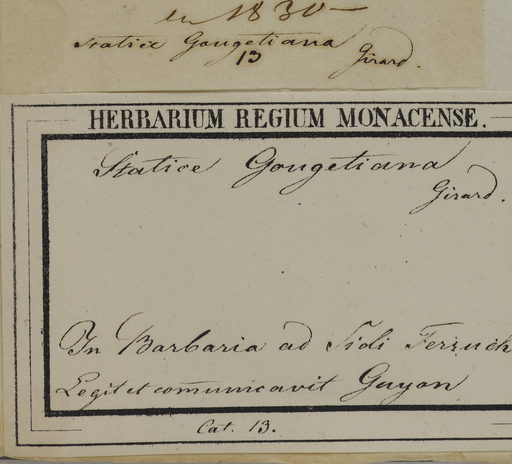 en 1830
Statice Gougetiana
13 Girard.
HERBARIUM REGIUM MONACENSE.
Statice Gougetiana
Girard.
In Barbaria ad Sidi Ferruch
Legit et communicavit Guyon
Cat. 13.